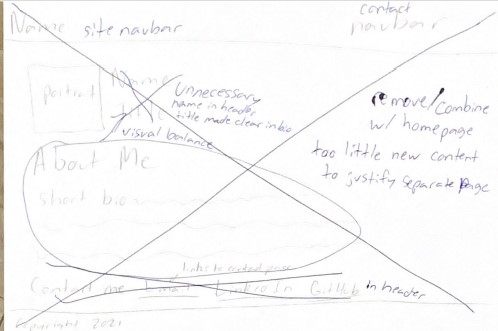 Name site navbar
contact
navbar
portrait
Name
title
Unnecessary
name in header
title made clear in bio
visual balance
remove/combine
w/ homepage
too little new content
to justify separate page
About Me
short bio
links to contact page
Contact me Email LinkedIn GitHub in header
Copyright 2021